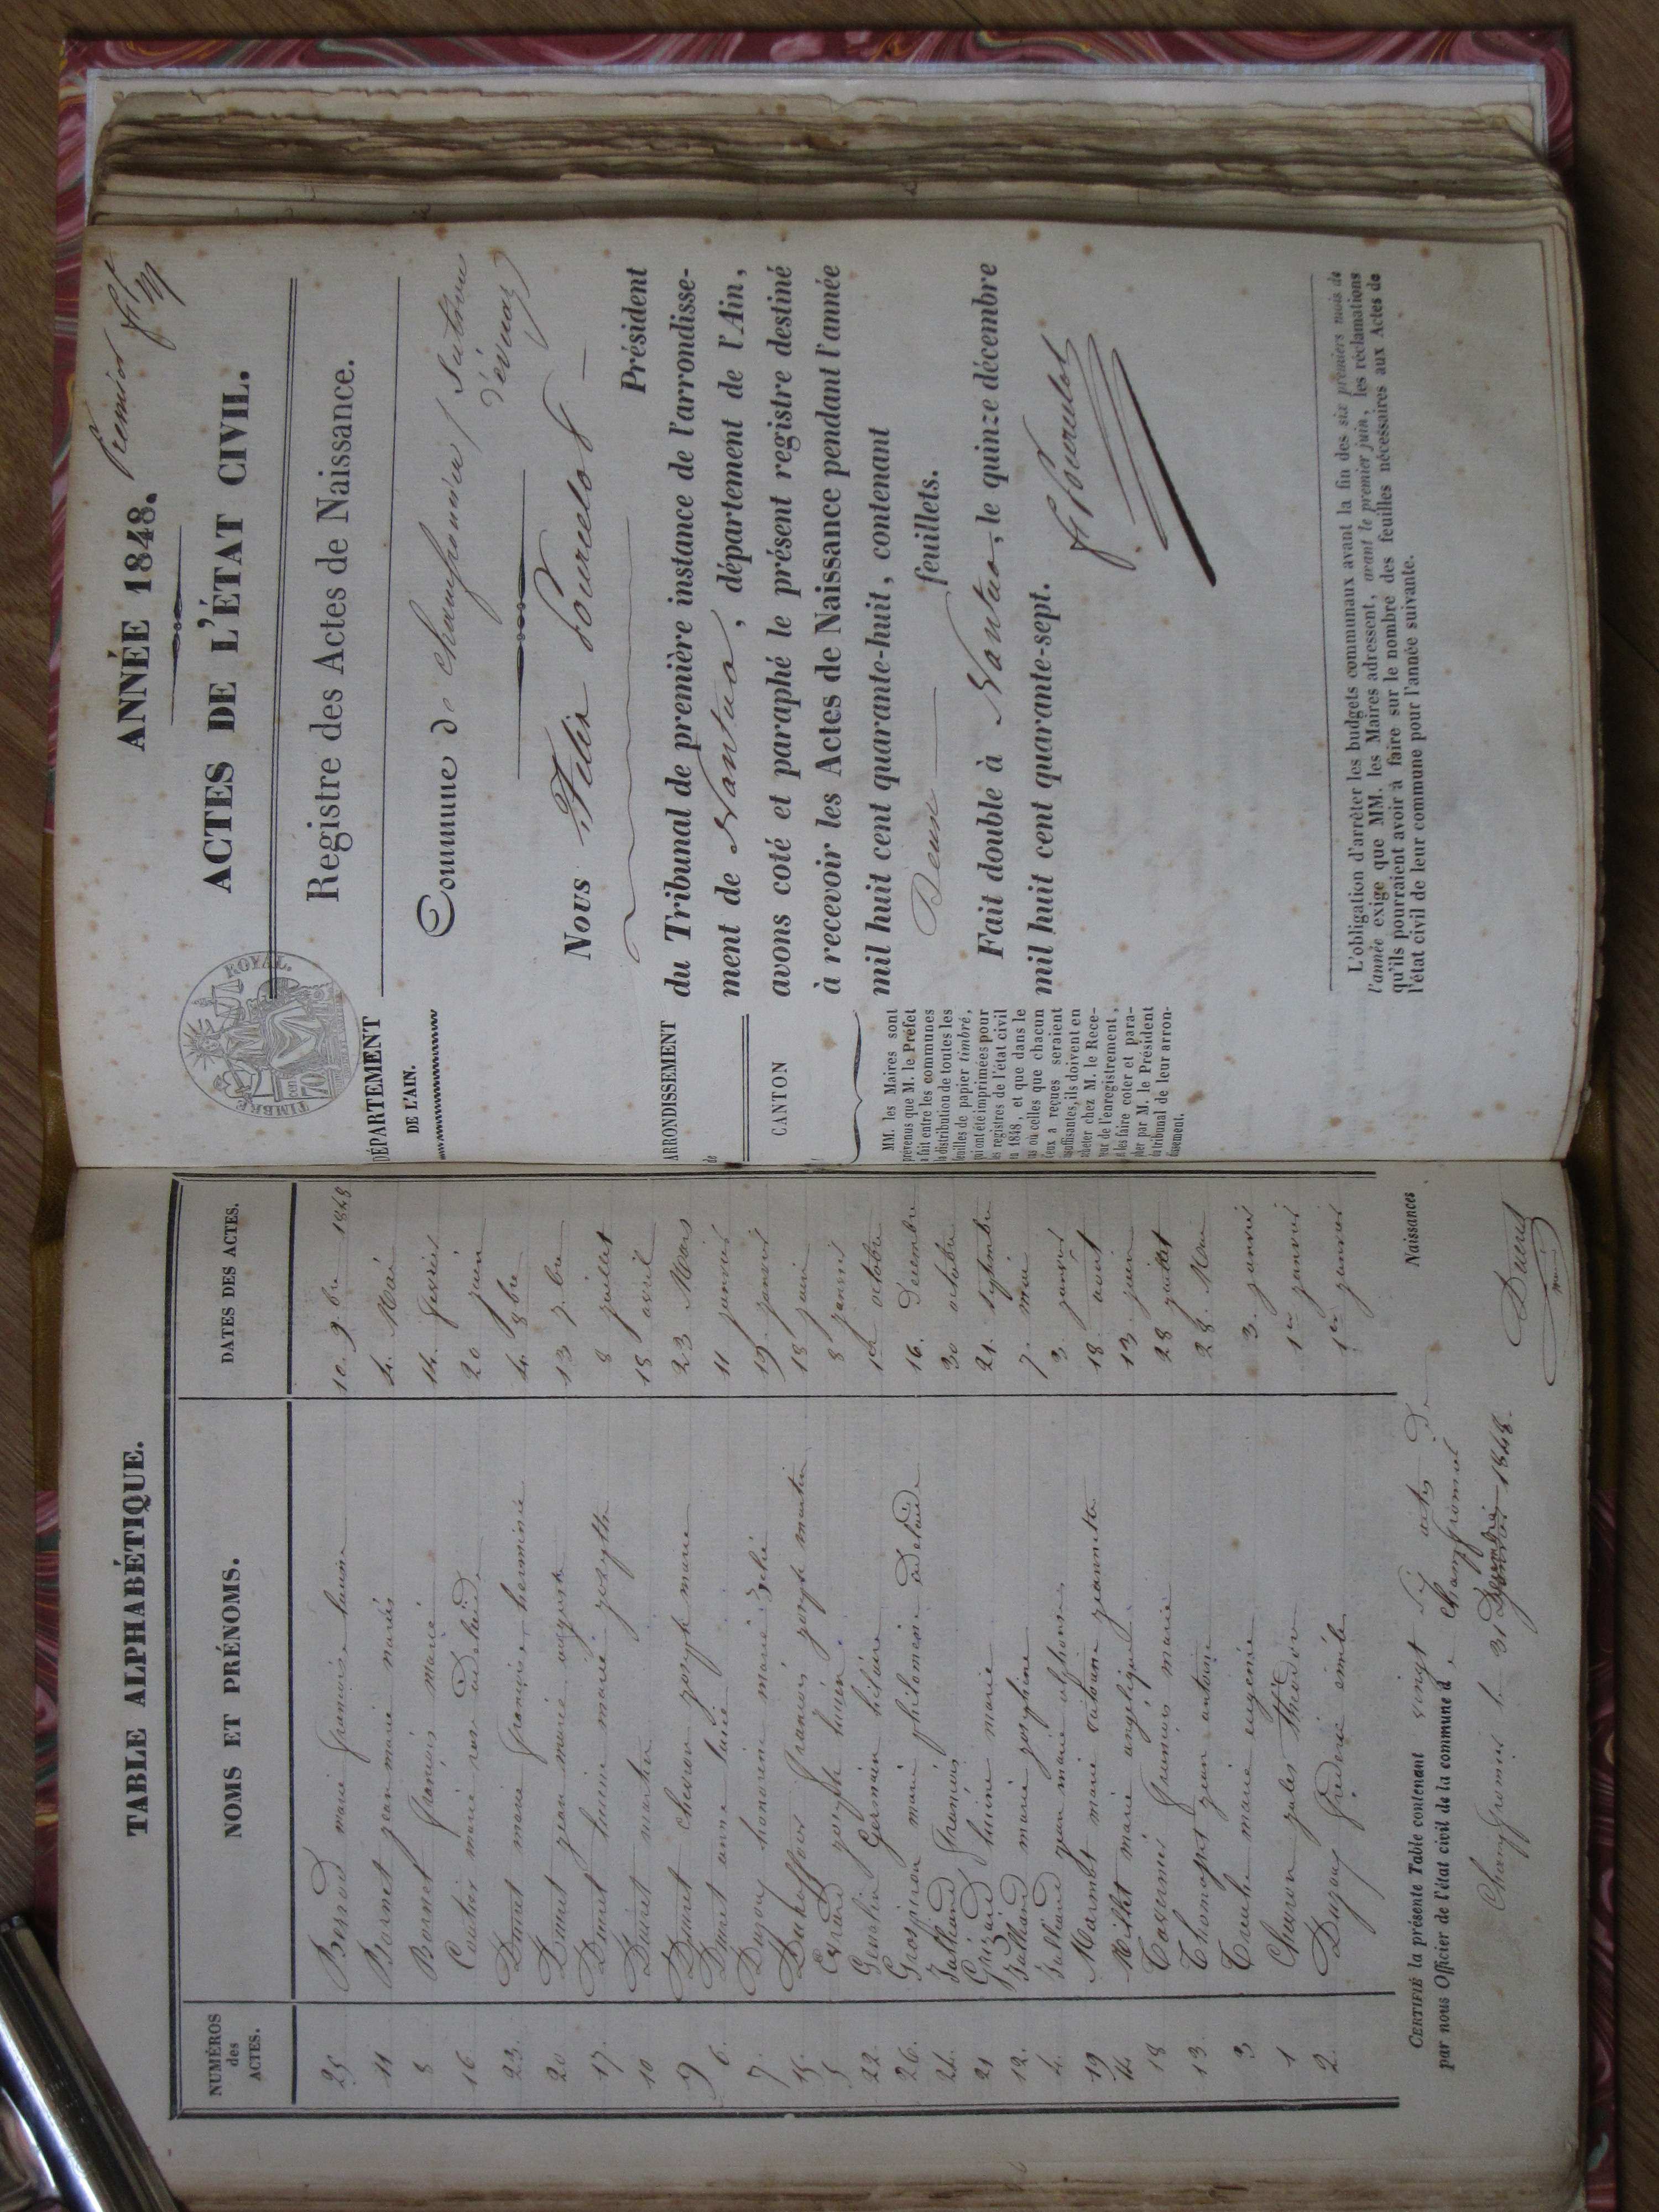 TABLE ALPHABÉTIQUE.
NUMÉROS des ACTES. NOMS ET PRÉNOMS. DATES DES ACTES.
25 marie françoise 10. 9.bre 1848
11 Bornet jean marie 4. Mai
8 Bornet françois marie 14. février
16 marie rose adelaïde 20 juin
23. Duret marie françoise herminie 4. 8bre
20 Duret jean marie auguste 13 7.bre
17. Duret marie josephte 8 juillet
10 Duret 18 avril
9 Duret joseph marie 23 Mars
6. Duret anne 11 janvier
7. Dujouy honorine marie 19. janvier
15. françois joseph martin 18 juin
5 Evrard joseph 8 janvier
22. Germain hilaire 1er octobre
26. Grospiron marie philomène adelaïde 16. Décembre
24. Julliand françois 30 octobre
21 marie 21. septembre
12. Julliand marie josephine 7. mai
4. Julliand jean marie alphonse 3. janvier
19 Marmet marie jeannette 18. août
14. Millet marie angélique 13. juin
18 Tavernier marie 28 juillet
13. jean antoine 28. Mai
3 marie eugénie 3. janvier
1 jules théodore 1er janvier
2. Dujouy fréderic émile 1er janvier
CERTIFIÉ la présente Table contenant vingt six actes de Naissances
par nous Officier de l'état civil de la commune de Champfromier
Champfromier le 31 1848.
Ducret
ANNÉE 1848. Premier
ACTES DE L'ÉTAT CIVIL.
TIMBRE ROYAL. 70 cen
DÉPARTEMENT
DE L'AIN.
Registre des Actes de Naissance.
Commune de Champfromier
Nous Félix Président
ARRONDISSEMENT
de
CANTON
du Tribunal de première instance de l'arrondisse-
ment de Nantua, département de l'Ain,
avons coté et paraphé le présent registre destiné
à recevoir les Actes de Naissance pendant l'année
mil huit cent quarante-huit, contenant
feuillets.
Fait double à Nantua, le quinze décembre
mil huit cent quarante-sept.
MM. les Maires sont
prévenus que M. le Préfet
a fait entre les communes
la distribution de toutes les
feuilles de papier timbré,
qui ont été imprimées pour
les registres de l'état civil
en 1848, et que dans le
cas où celles que chacun
d'eux a reçues seraient
insuffisantes, ils doivent en
acheter chez M. le Rece-
veur de l'enregistrement,
et les faire coter et para-
pher par M. le Président
du tribunal de leur arron-
dissement.
L'obligation d'arrêter les budgets communaux avant la fin des six premiers mois de
l'année exige que MM. les Maires adressent, avant le premier juin, les réclamations
qu'ils pourraient avoir à faire sur le nombre des feuilles nécessaires aux Actes de
l'état civil de leur commune pour l'année suivante.